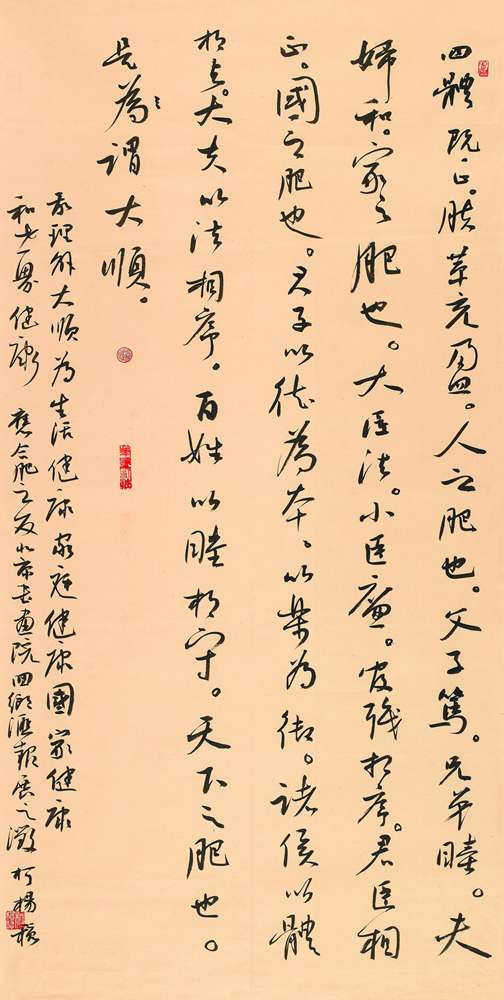 四體既正。膚革充盈。人之肥也。父子篤。兄弟睦。夫
婦和。家之肥也。大臣法。小臣廉。官職相序。君臣相
正。國之肥也。天子以德為車、以樂為御。諸侯以體
相與。大夫以法相序。百姓以睦相守。天下之肥也。
是為謂大順。
我理解大順為生活健康家庭健康國家健康
和世界健康 應合肥之友北京書畫院四鄉匯報展之邀